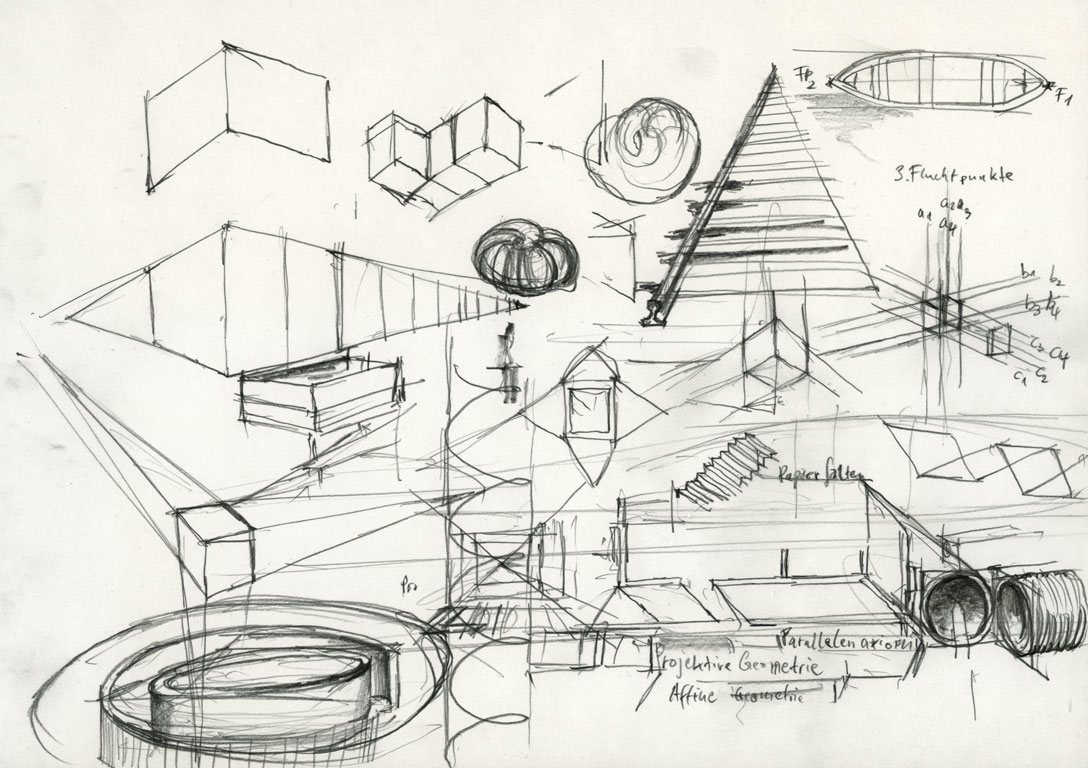 FP2
F1
3. Fluchtpunkte
a2 a3
a1 a4
b1 b2
b3 b4
c3 c4
c1 c2
Papier falten
Pro
Parallelenaxiom
Projektive Geometrie
Affine Geometrie